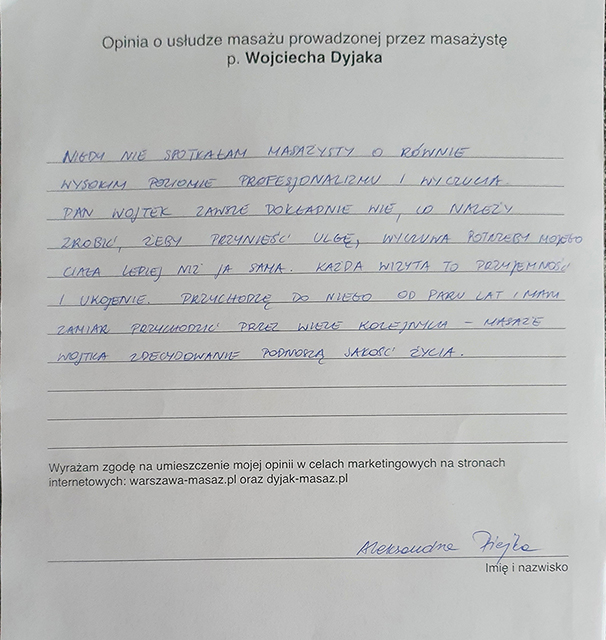 Opinia o usłudze masażu prowadzonej przez masażystę
p. Wojciecha Dyjaka
NIGDY NIE SPOTKAŁAM MASAŻYSTY O RÓWNIE
WYSOKIM POZIOMIE PROFESJONALIZMU I WYCZUCIA.
PAN WOJTEK ZAWSZE DOKŁADNIE WIE, CO NALEŻY
ZROBIĆ, ŻEBY PRZYNIEŚĆ ULGĘ, WYCZUWA POTRZEBY MOJEGO
CIAŁA LEPIEJ NIŻ JA SAMA. KAŻDA WIZYTA TO PRZYJEMNOŚĆ
I UKOJENIE. PRZYCHODZĘ DO NIEGO OD PARU LAT I MAM
ZAMIAR PRZYCHODZIĆ PRZEZ WIELE KOLEJNYCH – MASAŻE
WOJTKA ZDECYDOWANIE PODNOSZĄ JAKOŚĆ ŻYCIA.
Wyrażam zgodę na umieszczenie mojej opinii w celach marketingowych na stronach
internetowych: warszawa-masaz.pl oraz dyjak-masaz.pl
Aleksandra
Imię i nazwisko